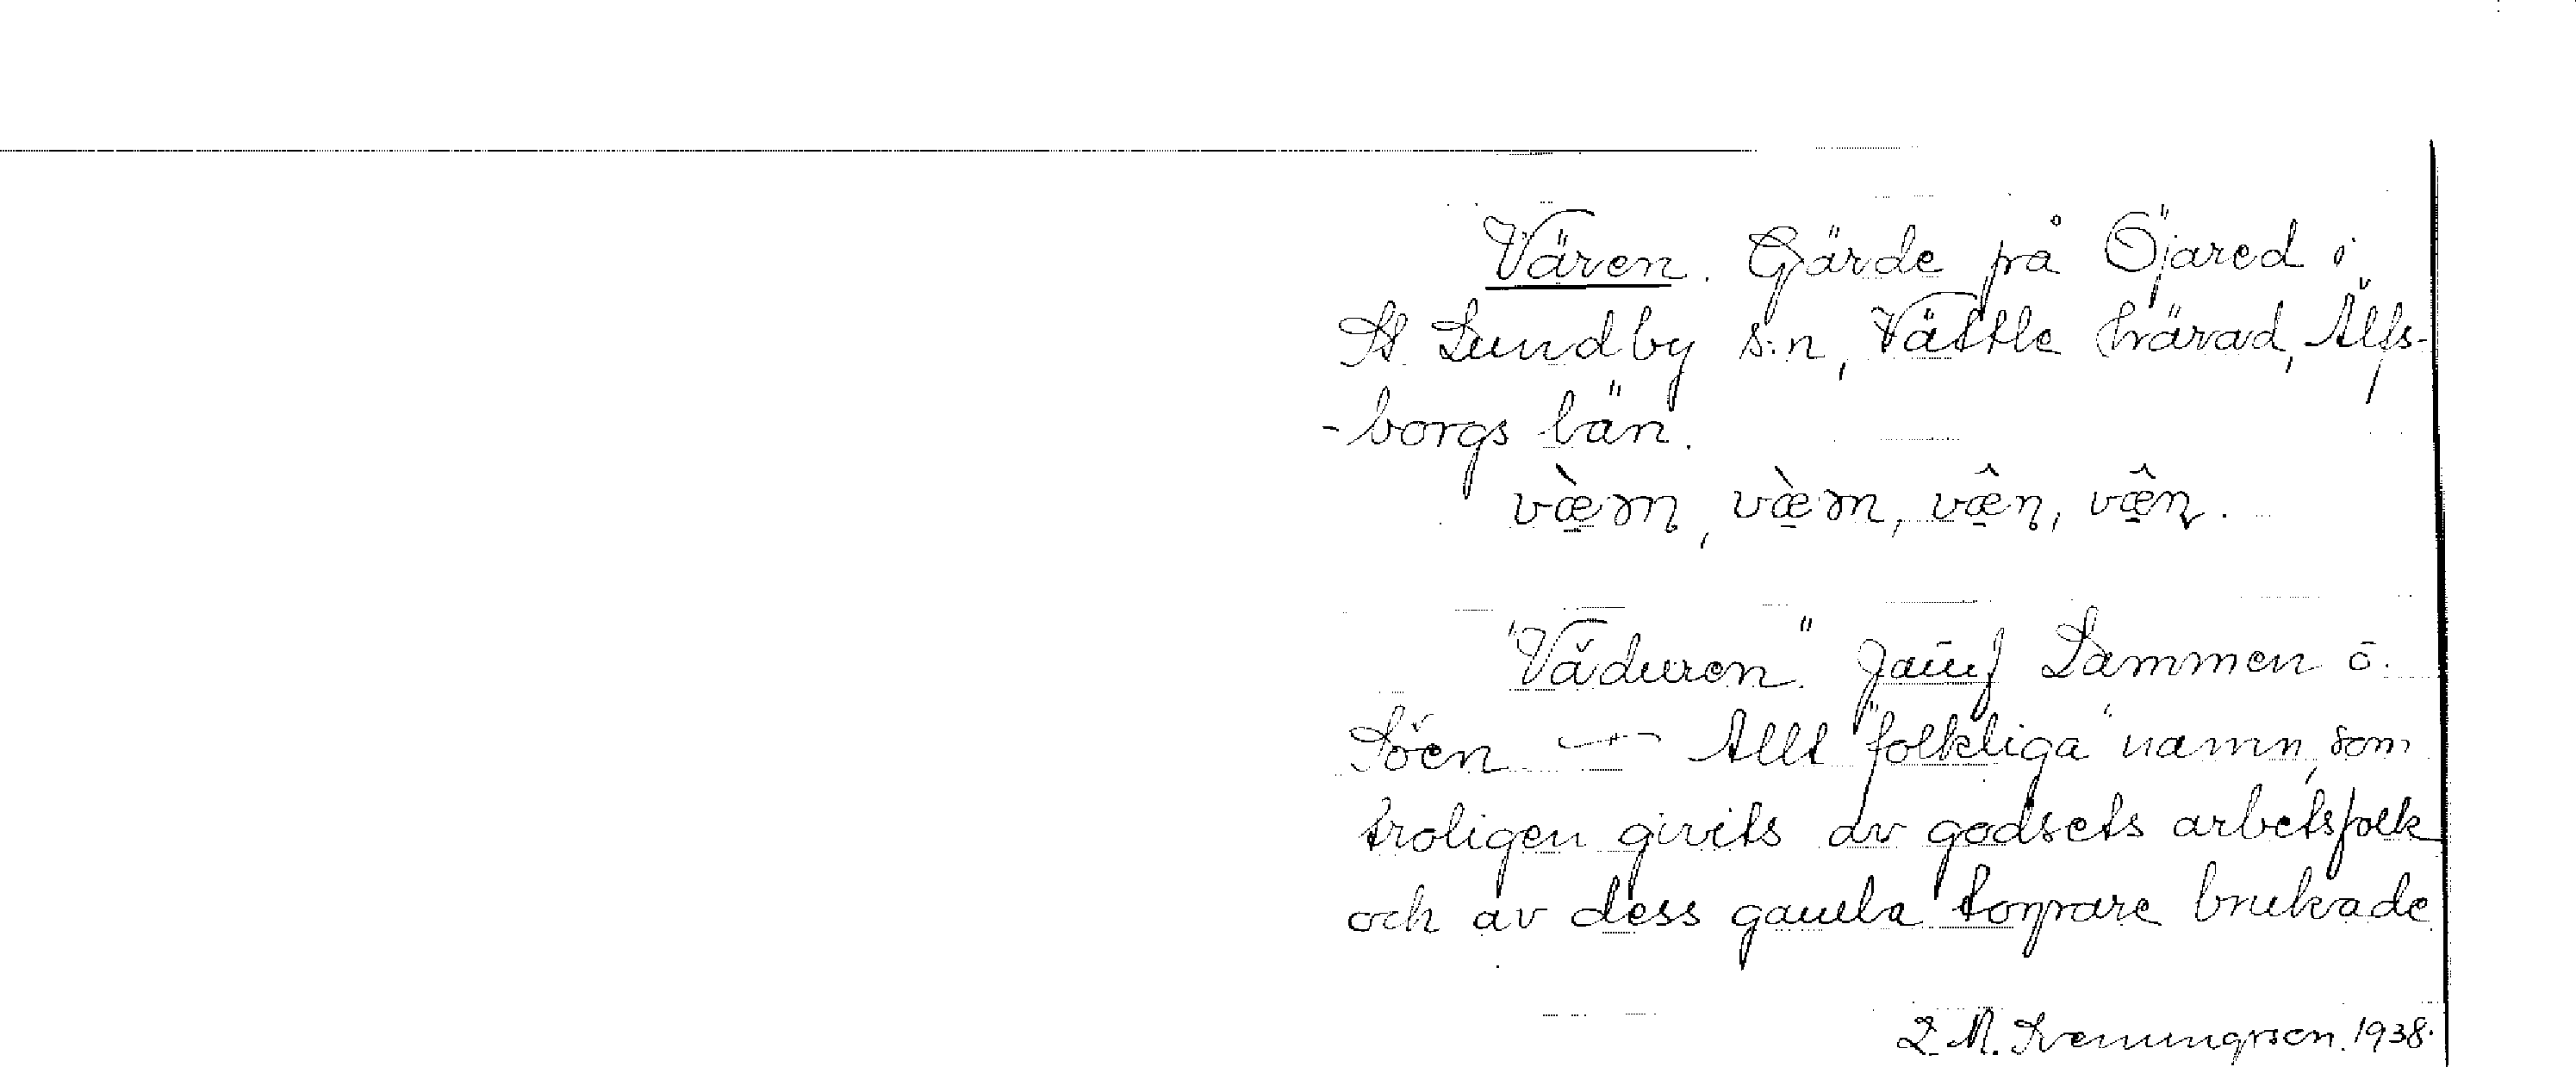 Vären. Gärde på Öjared i
St Lundby s:n, Vättle härad, Älfs-
-borgs län.
væ̀rn, væ̀rn, væ̂n, væ̂n.
"Väduren". Jämf Lammen o.
Söen — Allt "folkliga" namn, som
troligen givits av godsets arbetsfolk
och av dess gamla torpare brukade
L. M. Svenungsson. 1938.